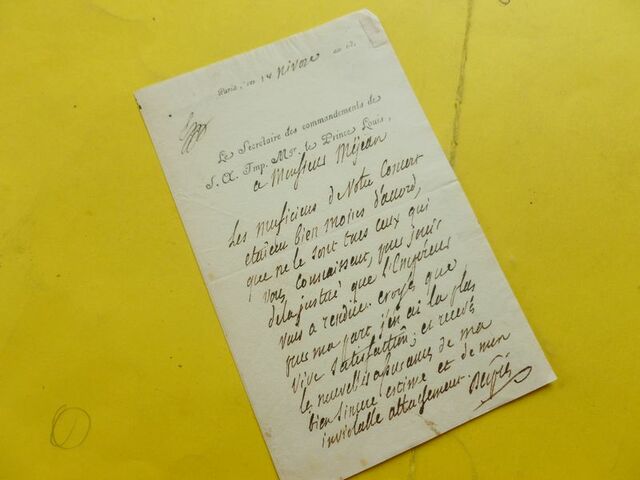 Paris, ce 14 nivose an 13.
Le Secrétaire des commandements de
S. A. Imp. Mgr. le Prince Louis,
a Monsieur Méjean
Les musiciens de Notre Concert
etaient bien moins d'accord,
que ne le sont tous ceux qui
vous connaissent, pour jouir
de la justice que l'Empereur
vous a rendue. croyez que
pour ma part, j'en ai la plus
vive satisfaction; et recevez
les nouvelles assurances de ma
bien sincere estime et de mon
inviolable attachement.